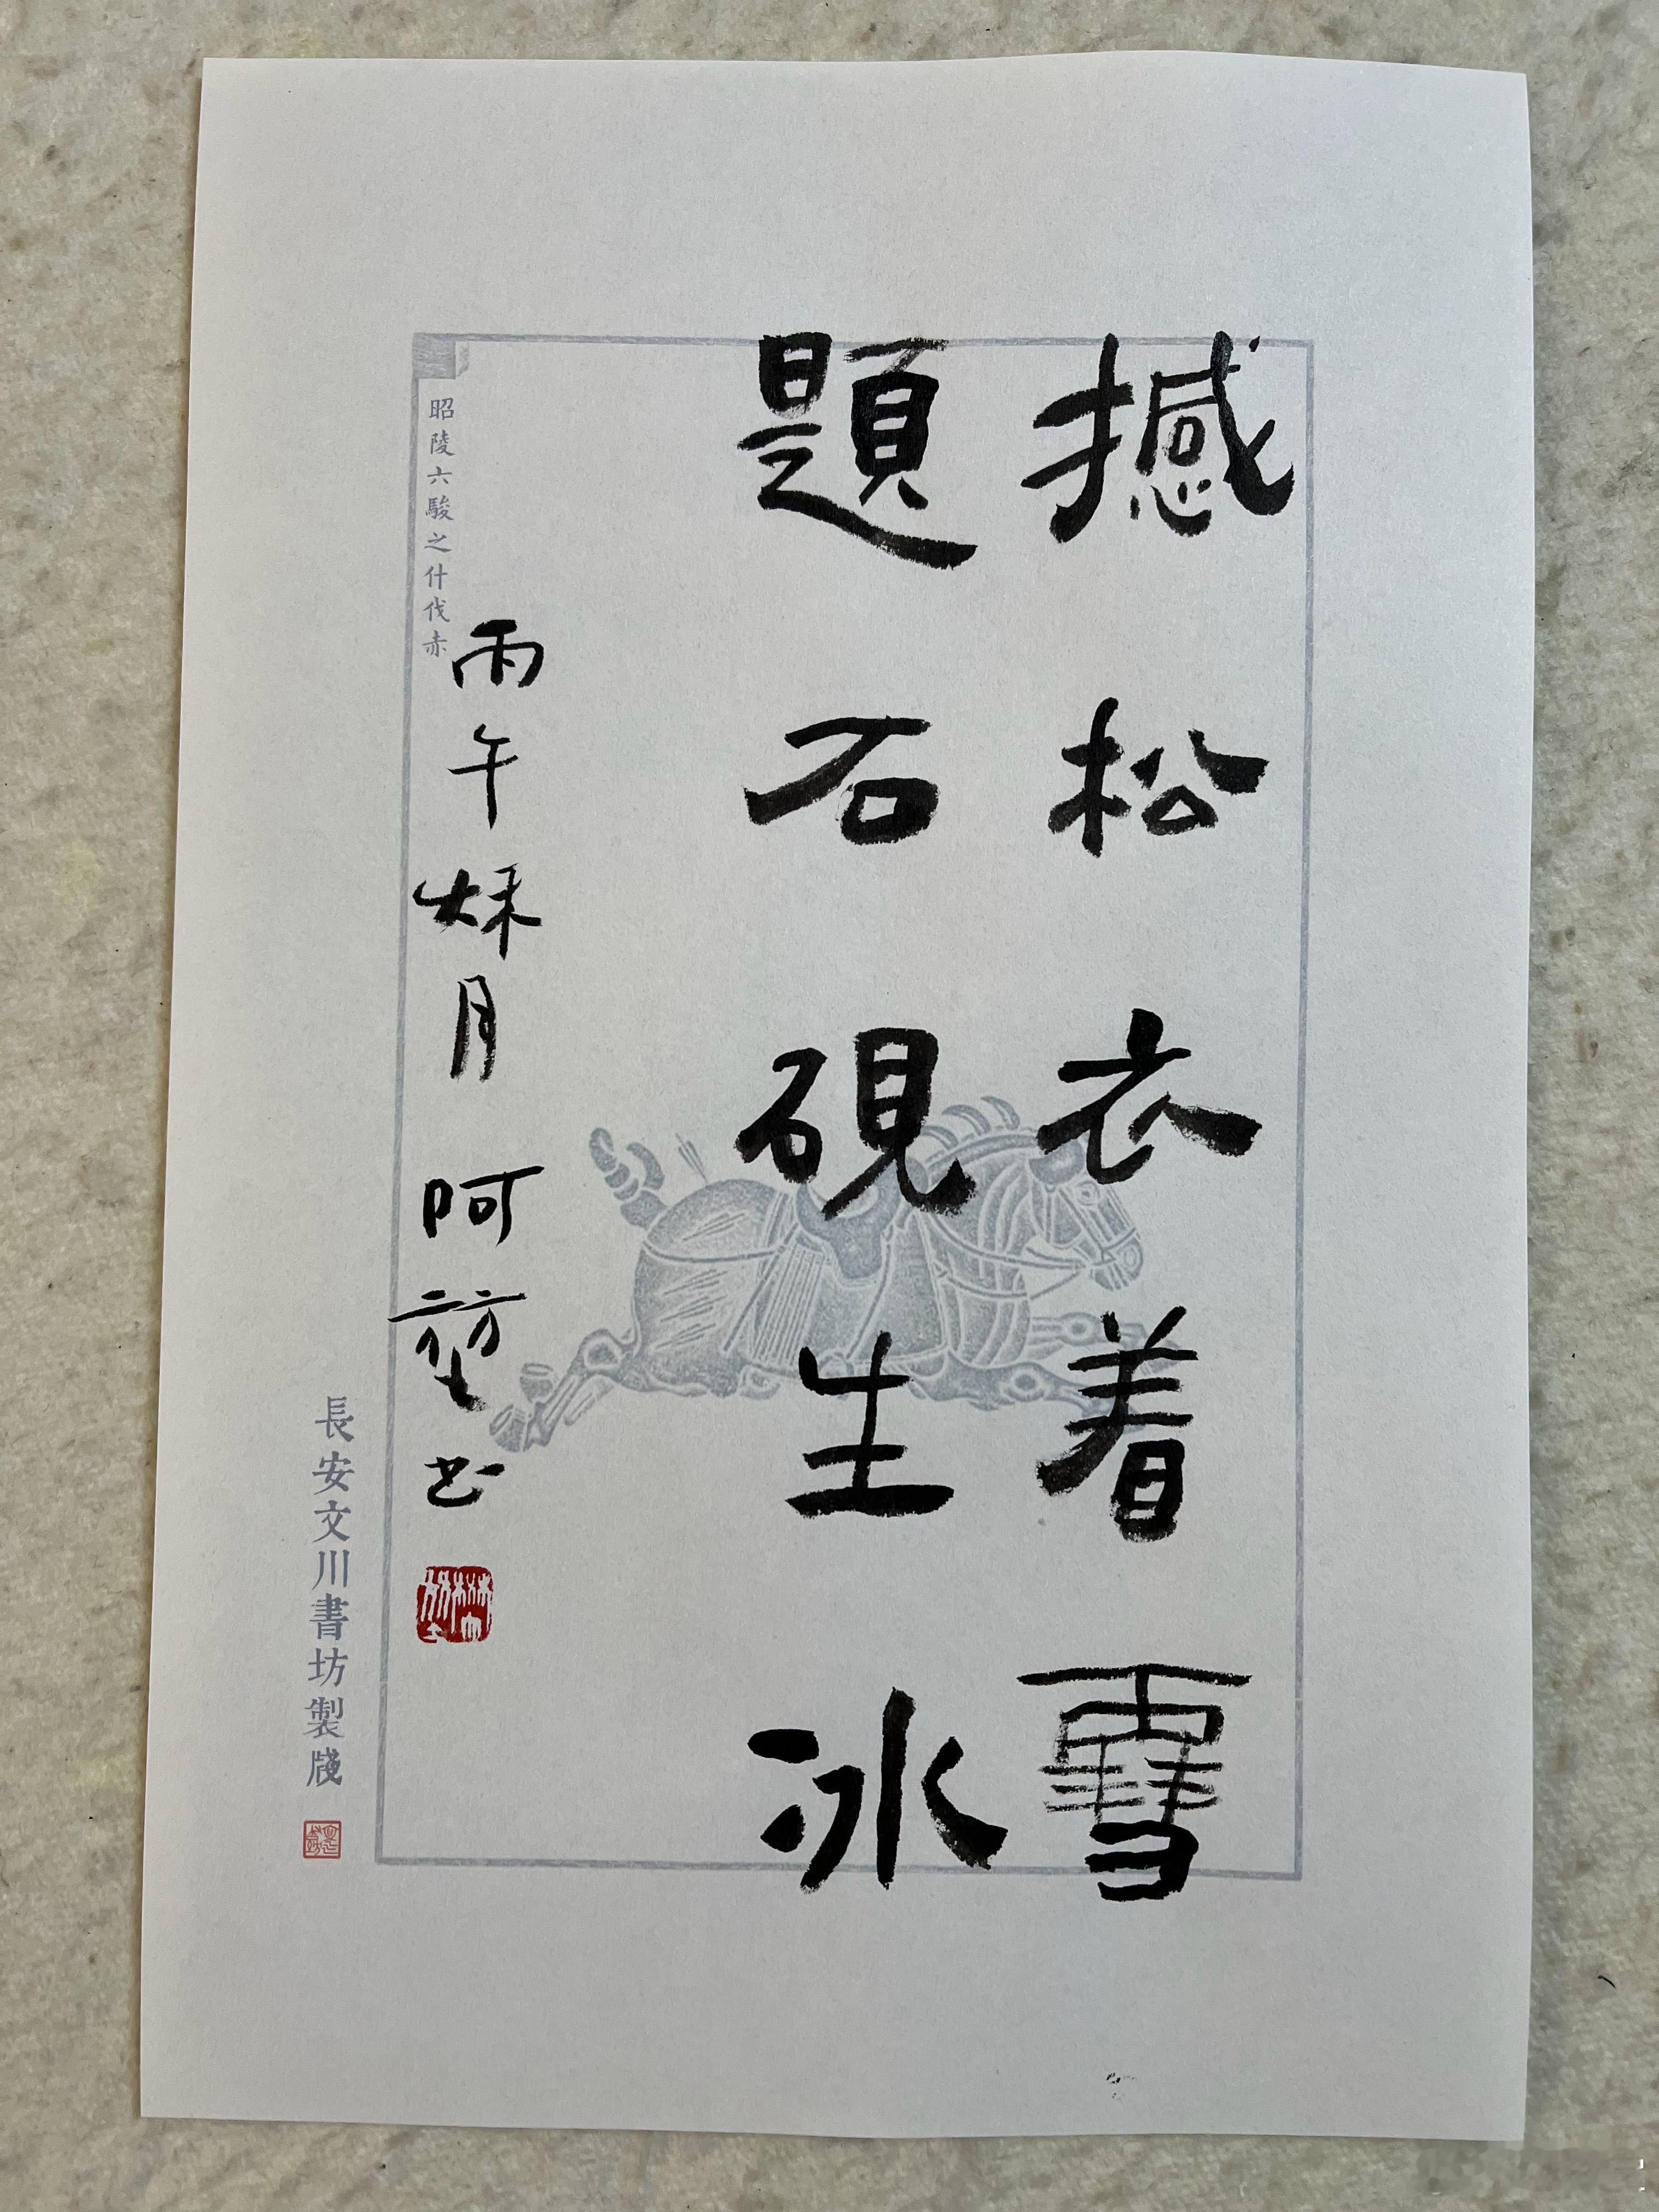 撼松衣着雪
題石硯生冰
丙午秌月 呵堃书
昭陵六駿之什伐赤
長安文川書坊製牋